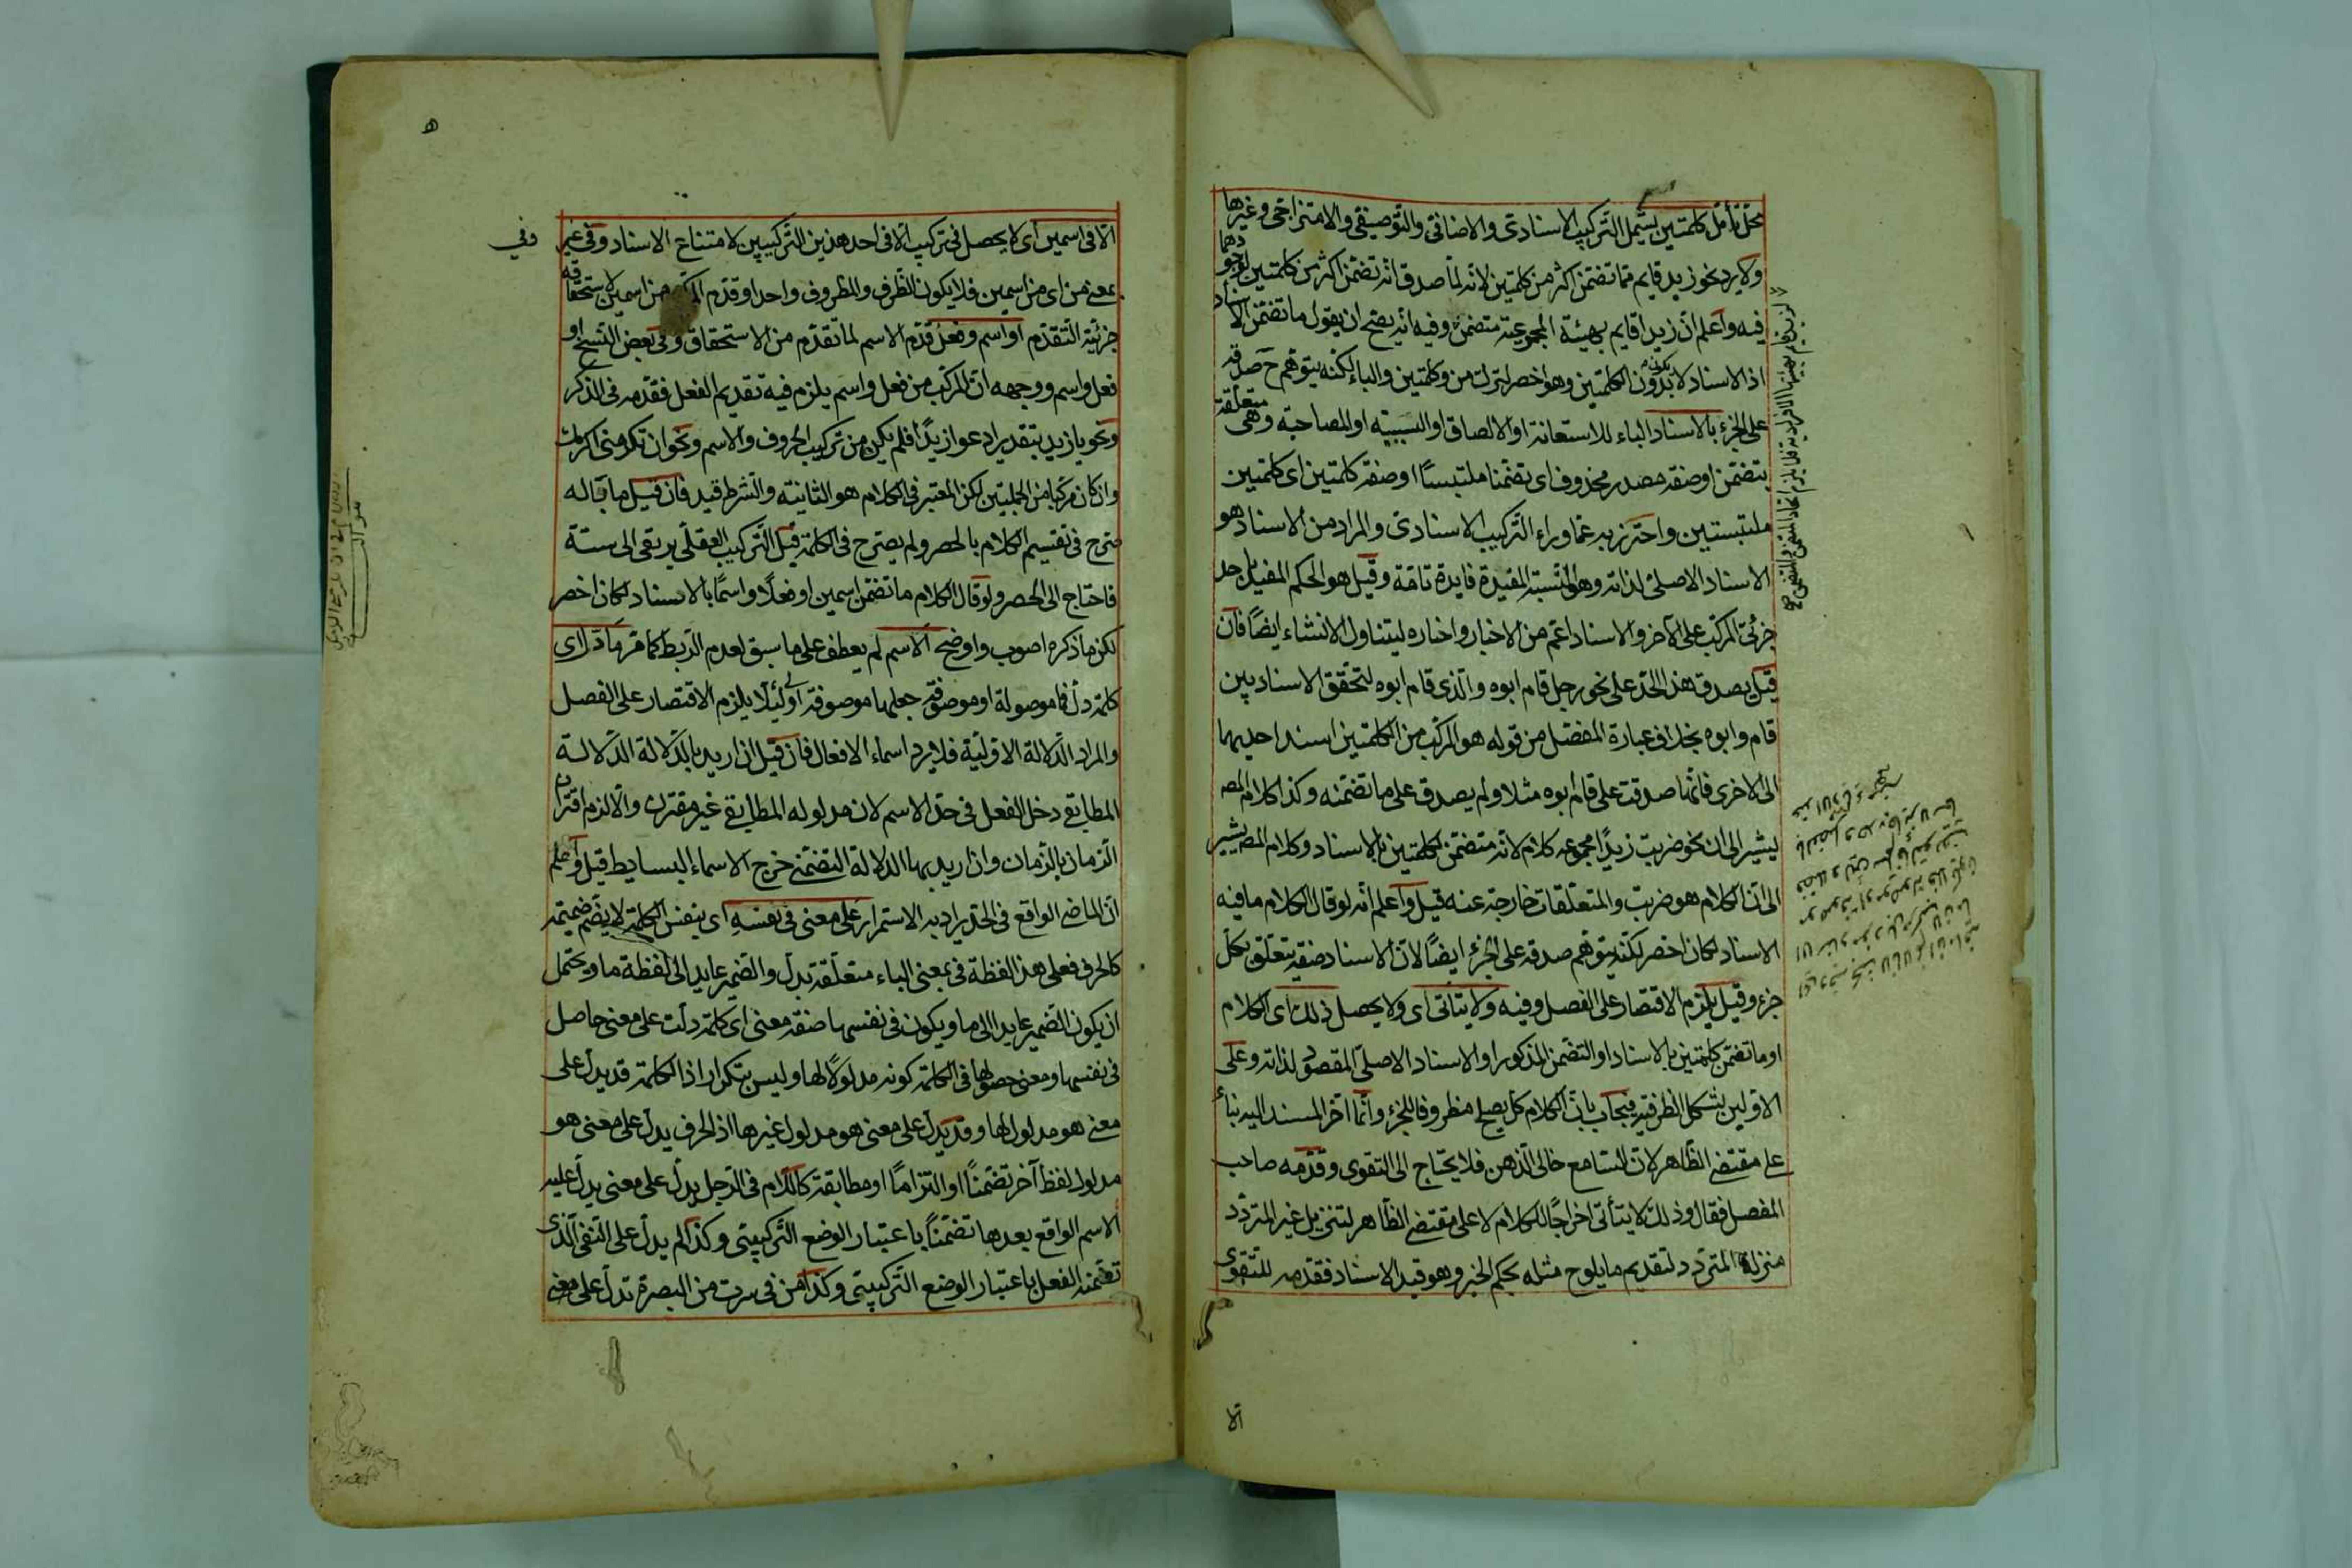 محل تأمل كلمتين يشمل التركيب الاسنادى والاضافى والتوصيفى والامتزاجى وغيرها
ولا يرد نحو زيد قايم مما تضمن اكثر من كلمتين لانه لما صدق انه تضمن اكثر من كلمتين
فيه واعلم ان زيدا قايم بهيئة المجموعية متضمن وفيه انه يصح ان يقول ما تضمن الاسناد
اذ الاسناد لا بدون الكلمتين وهو اخصر لترك من وكلمتين والباء لكنه يتوهم ح صدقه
على الجزء بالاسناد الباء للاستعانة او الالصاق او السببية او المصاحبة وهى متعلقة
بتضمن او صفة مصدر محذوف اى تضمنا ملتبسا او صفة كلمتين اى كلمتين
ملتبستين واحترز به عما وراء التركيب الاسنادى والمراد من الاسناد هو
الاسناد الاصلى لذاته وهو النسبة المفيدة فايدة تامة وقيل هو الحكم المفيد باحد
جزئى المركب على الآخر والاسناد اعم من الاخبار واختاره ليتناول الانشاء ايضا فان
قيل يصدق هذا الحد على نحو رجل قام ابوه والذى قام ابوه لتحقق الاسناد بين
قام وابوه بخلاف عبارة المفصل من قوله هو المركب من الكلمتين اسند احديهما
الى الاخرى فانها صدقت على قام ابوه مثلا ولم يصدق على ما تضمنه وكذا كلام المص
يشير الى ان نحو ضربت زيدا مجموعه كلام لانه متضمن لكلمتين بالاسناد وكلام المص يشير
الى ان الكلام هو ضربت والمتعلقات خارجة عنه قيل واعلم انه لو قال الكلام ما فيه
الاسناد لكان اخصر لكنه يتوهم صدقه على الجزء ايضا لان الاسناد صفة يتعلق بكل
جزء وقيل يلزم الاقتصار على الفصل وفيه ولا يتأتى اى ولا يحصل ذلك اى الكلام
او ما تضمن كلمتين بالاسناد او التضمن المذكور او الاسناد الاصلى المقصود لذاته وعلى
الاولين يشكل الظرفية فيجاب بان الكلام كل يصلح مظروفا للجزء وانما اخر المسند اليه بناء
على مقتضى الظاهر لان السامع خالى الذهن فلا يحتاج الى التقوى وقدمه صاحب
المفصل فقال وذلك لا يتأتى اخراجا للكلام لا على مقتضى الظاهر لتنزيل غير المتردد
منزلة المتردد لتقديم ما يلوح مثله بحكم الخبر وهو قيد الاسناد فقدمه للتقوى
الا
ه
الا فى اسمين اى لا يحصل فى تركيب الا فى احد هذين التركيبين لامتناع الاسناد وفى غير
وفى
بمعنى من اى من اسمين فلا يكون الظرف والمظروف واحدا وقدم من اسمين لاستحقاقه
جزئية التقدم او اسم وفعل قدم الاسم لما تقدم من الاستحقاق وفى بعض النسخ او
فعل واسم ووجهه ان المركب من فعل واسم يلزم فيه تقديم الفعل فقدمه فى الذكر
ونحو يا زيد بتقدير ادعو زيدا فلم يكن من تركيب الحروف والاسم ونحو ان تكرمنى اكرمك
وان كان مركبا من الجملتين لكن المعتبر فى الكلام هو الثانية والشرط قيد فان قيل ما باله
صرح فى تقسيم الكلام بالحصر ولم يصرح فى الكلمة قيل التركيب العقلى يرتقى الى ستة
فاحتاج الى الحصر ولو قال الكلام ما تضمن اسمين او فعلا واسما بالاسناد لكان اخصر
لكن ما ذكره اصوب واوضح الاسم لم يعطف على ما سبق لعدم الربط كما مر ما دل اى
كلمة دل فما موصولة او موصوفة جعلها موصوفة اولى لئلا يلزم الاقتصار على الفصل
والمراد الدلالة الاولية فلا يرد اسماء الافعال فان قيل ان اريد بالدلالة الدلالة
المطابقى دخل الفعل فى حد الاسم لان مدلوله المطابقى غير مقترن والا لزم اقتران
الزمان بالزمان وان اريد بها الدلالة التضمنى خرج الاسماء البسايط قيل واعلم
ان الماضى الواقع فى الحد يراد به الاستمرار على معنى فى نفسه اى بنفس الكلمة لا بضم ضميمة
كالحرف فعلى هذا لفظة فى بمعنى الباء متعلقة بدل والضمير عايد الى لفظة ما ويحتمل
ان يكون الضمير عايدا الى ما ويكون فى نفسها صفة معنى اى كلمة دلت على معنى حاصل
فى نفسها ومعنى حصولها فى الكلمة كونه مدلولا لها وليس بتكرار اذ الكلمة قد يدل على
معنى هو مدلول لها وقد يدل على معنى هو مدلول غيرها اذ الحرف يدل على معنى هو
مدلول لفظ آخر تضمنا او التزاما او مطابقة كاللام فى الرجل يدل على معنى يدل عليه
الاسم الواقع بعدها تضمنا باعتبار الوضع التركيبى وكذا لم يدل على النفى الذى
تضمنه الفعل باعتبار الوضع التركيبى وكذا من فى سرت من البصرة تدل على معنى